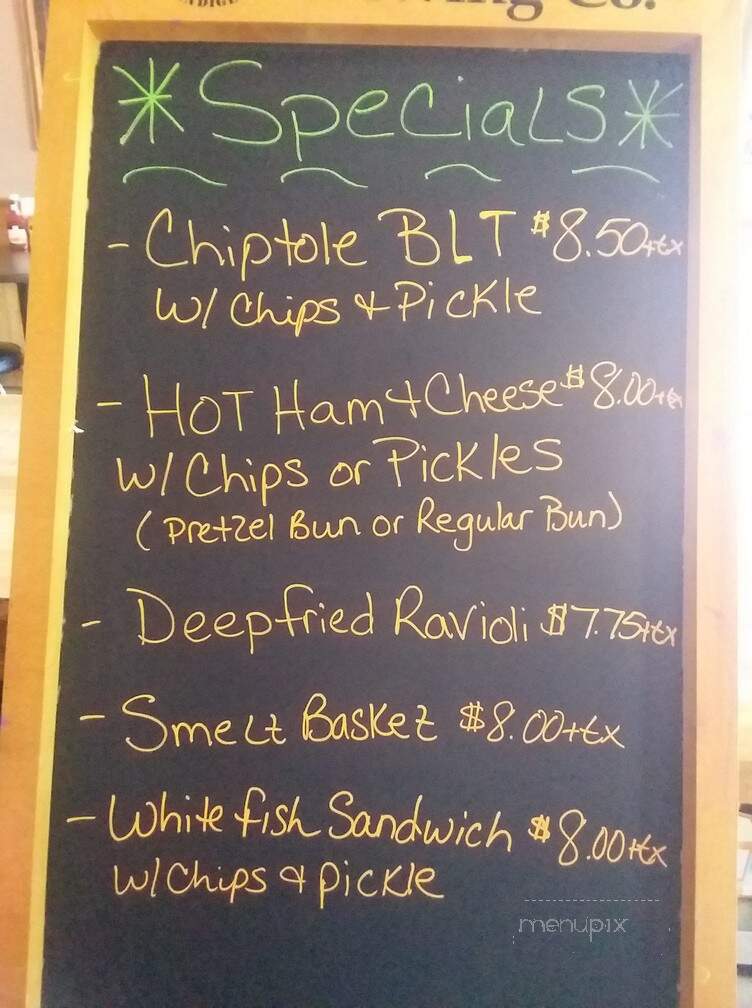 *Specials*
- Chiptole BLT $8.50+tx
W/ Chips & Pickle
- Hot Ham & Cheese $8.00+tx
W/ Chips or Pickles
(Pretzel Bun or Regular Bun)
- Deepfried Ravioli $7.75+tx
- Smelt Basket $8.00+tx
- White fish Sandwich $8.00+tx
W/ Chips & Pickle
menupix